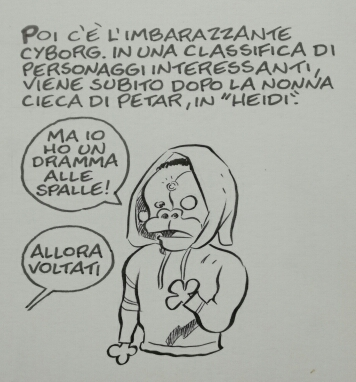 POI C'È L'IMBARAZZANTE
CYBORG. IN UNA CLASSIFICA DI
PERSONAGGI INTERESSANTI,
VIENE SUBITO DOPO LA NONNA
CIECA DI PETAR, IN "HEIDI".
MA IO
HO UN
DRAMMA
ALLE
SPALLE!
ALLORA
VOLTATI